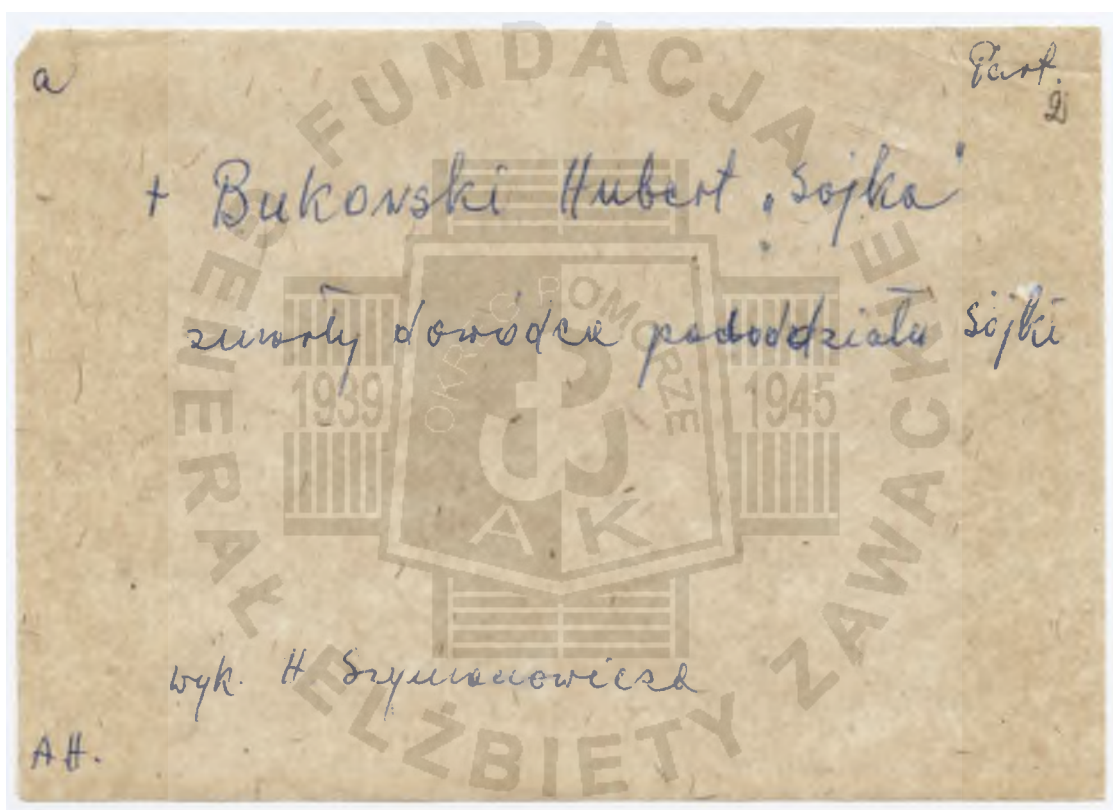 a
Part.
2
+ Bukowski Hubert „Sojka"
zmarły dowódca pododdziału Sójki
wyk. H Szymanowicza
A H.
FUNDACJA GENERAŁ ELŻBIETY ZAWACKIEJ
OKRĘG POMORZE
1939
1945
AK